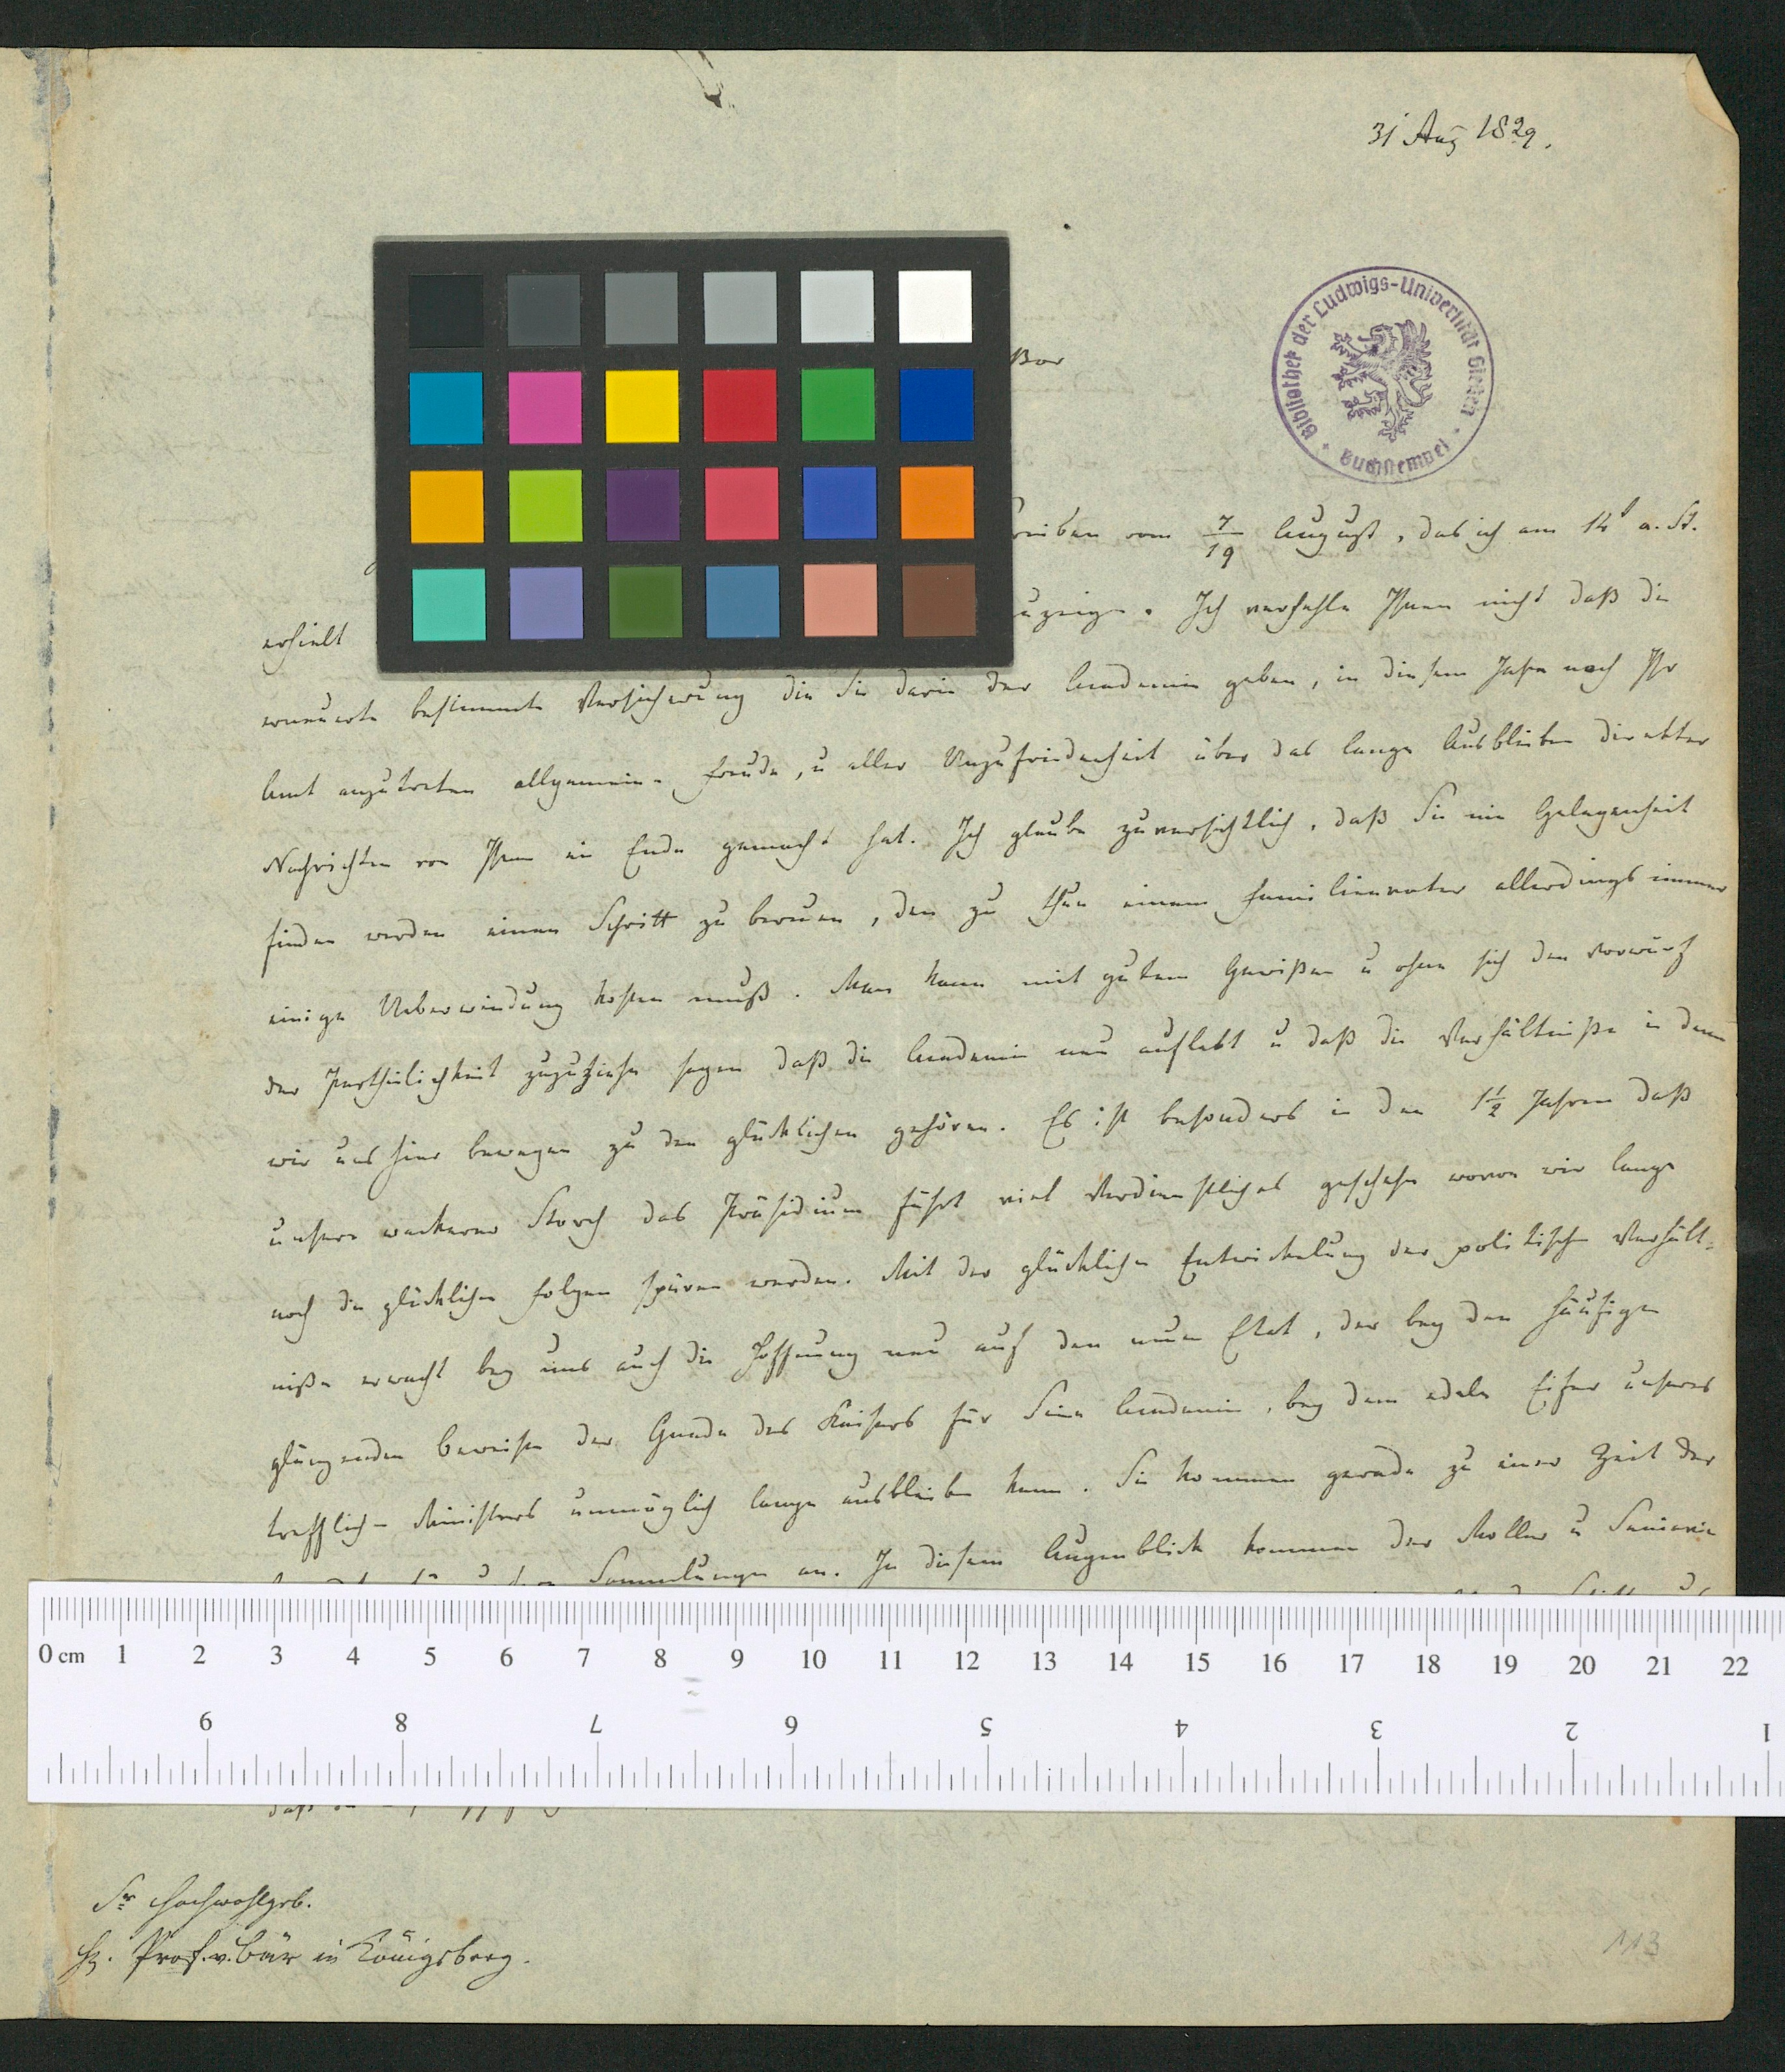 31 Aug 1829.
Bibliothek der Ludwigs-Universität Gießen
Buchstempel
ßor
reiben vom 7/19 August, das ich am 14t a. St.
erhielt uzeigen. Ich verhehle Ihnen nicht daß die
erneuerte bestimmte Versicherung die Sie darin der Academie geben, in diesem Jahre noch Ihr
Amt anzutreten allgemeine Freude, u aller Unzufriedenheit über das lange Ausbleiben direkter
Nachrichten von Ihnen ein Ende gemacht hat. Ich glaube zuversichtlich, daß Sie nie Gelegenheit
finden werden einen Schritt zu bereuen, den zu thun einem Familienvater allerdings immer
einige Ueberwindung kosten muß. Man kann mit gutem Gewißen u ohne sich den Vorwurf
der Partheilichkeit zuzuziehen sagen daß die Academie neu auflebt u daß die Verhältniße in denen
wir uns hier bewegen zu den glücklichen gehören. Es ist besonders in den 1½ Jahren daß
unserer wackerer Storch das Präsidium führt viel Verdienstliches geschehen wovon wir lange
noch die glücklichen Folgen spüren werden. Mit der glücklichen Entwickelung der politischen Verhält-
niße erwacht bey uns auch die Hoffnung neu auf den neuen Etat, der bey den häufigen
glänzenden Beweisen der Gnade des Kaisers für Seine Academie, bey dem edeln Eifer unseres
trefflichen Ministers unmöglich lange ausbleiben kann. Sie kommen gerade zu einer Zeit der
Sammlungen an. In diesem Augenblick kommen der Moller u
0 cm 1 2 3 4 5 6 7 8 9 10 11 12 13 14 15 16 17 18 19 20 21 22
9 8 7 6 5 4 3 2 1
daß
Sr Hochwohlgeb.
Hr. Prof. v. Bär in Königsberg.
113